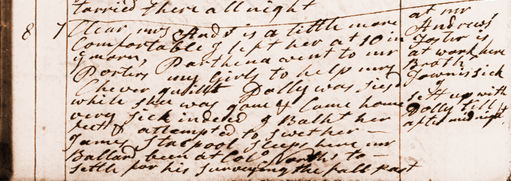 tarried there all night
8 7 Clear mrs Ands is a little more
Comfortable I left her at 10 in
ye morn, Parthena went to mr
Porters my Girls to help mrs
Chever quillt Dolly was sies
while shee was gone & Came home
very sick indeed I Batht her
feet & attempted to swether –
James Stacpool sleeps here mr
Ballard been at Col Norths to –
settle for his surveying the fall past
at mr
Andrews
Foster is
at work here
Brath
Townsi sick
I
sett up with
Dolly till
after midnigt